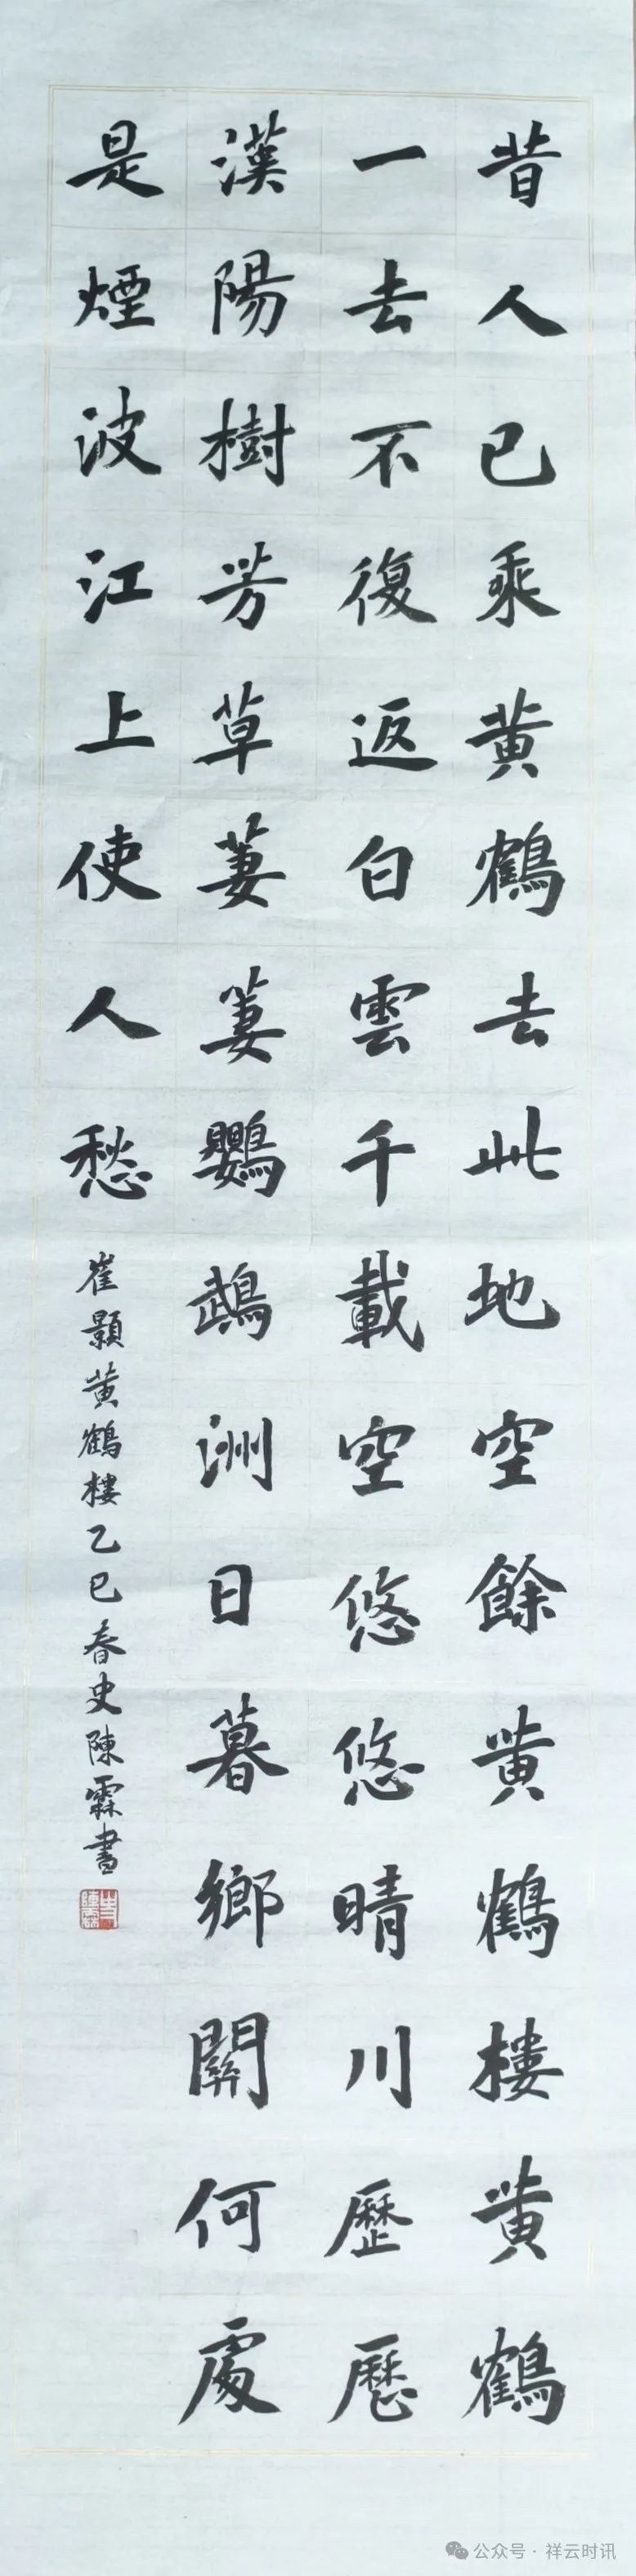 昔人已乘黄鶴去此地空餘黄鶴樓黄鶴
一去不復返白雲千載空悠悠晴川歷歷
漢陽樹芳草萋萋鸚鵡洲日暮鄉關何處
是煙波江上使人愁
崔顥黄鶴樓乙巳春史陳霖書
史陳霖
公众号·祥云时讯